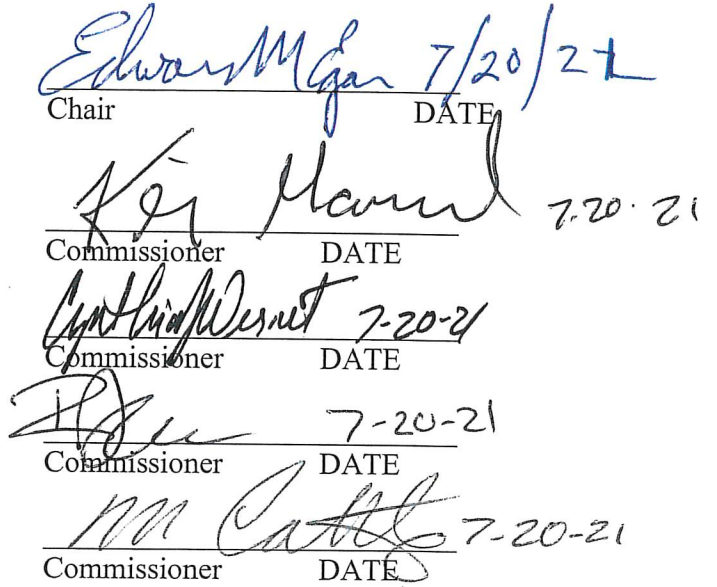 Edward M Egan 7/20/21
Chair DATE
7.20.21
Commissioner DATE
Cynthia 7-20-21
Commissioner DATE
7-20-21
Commissioner DATE
7-20-21
Commissioner DATE